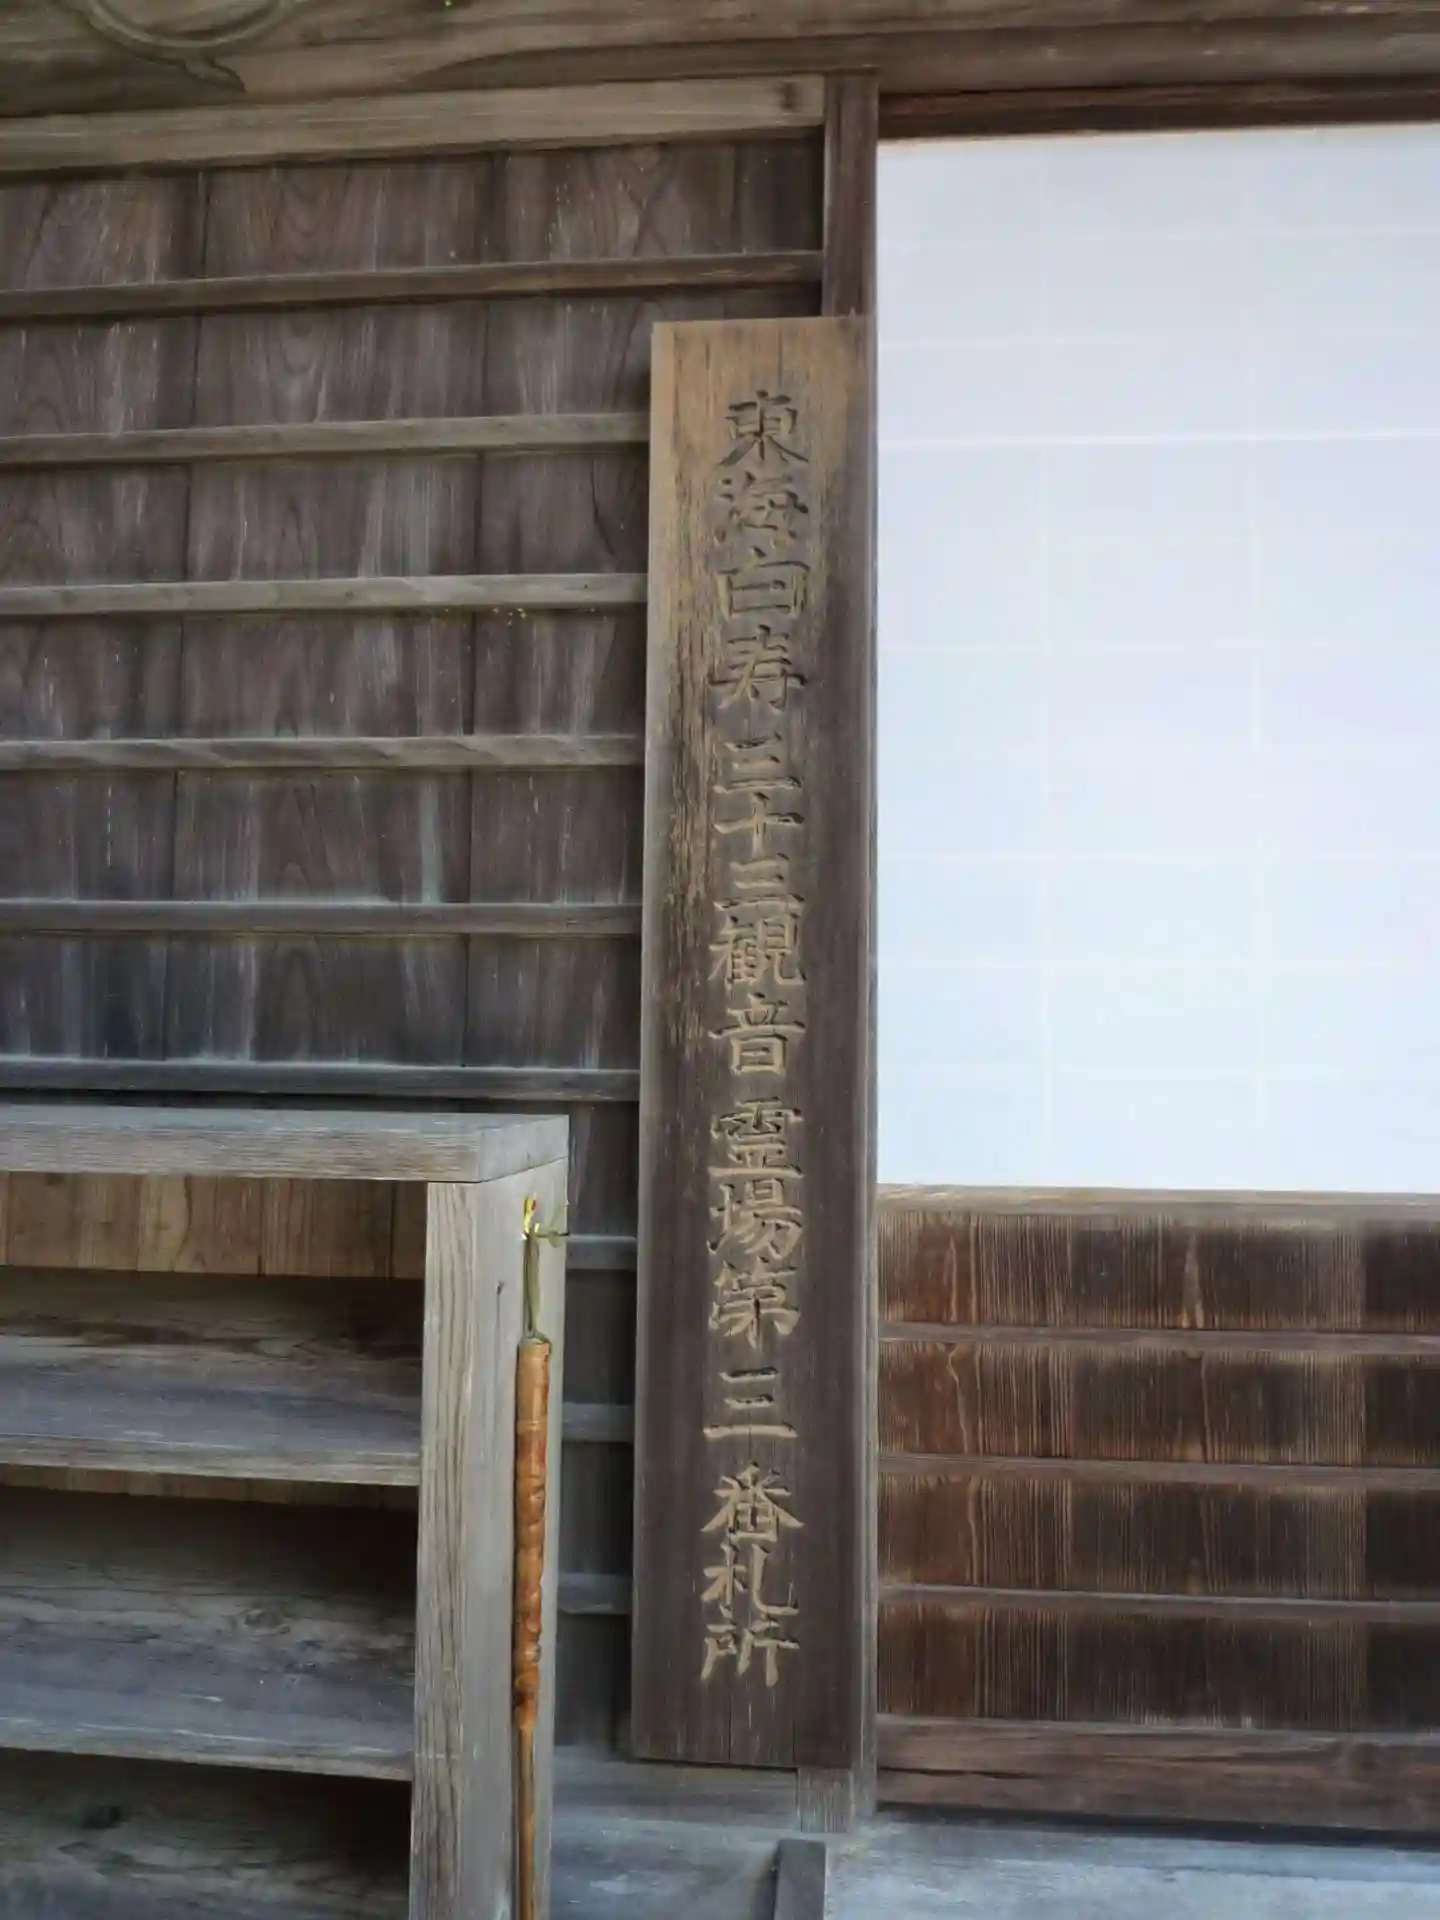 東海白寿三十三観音霊場第三番札所